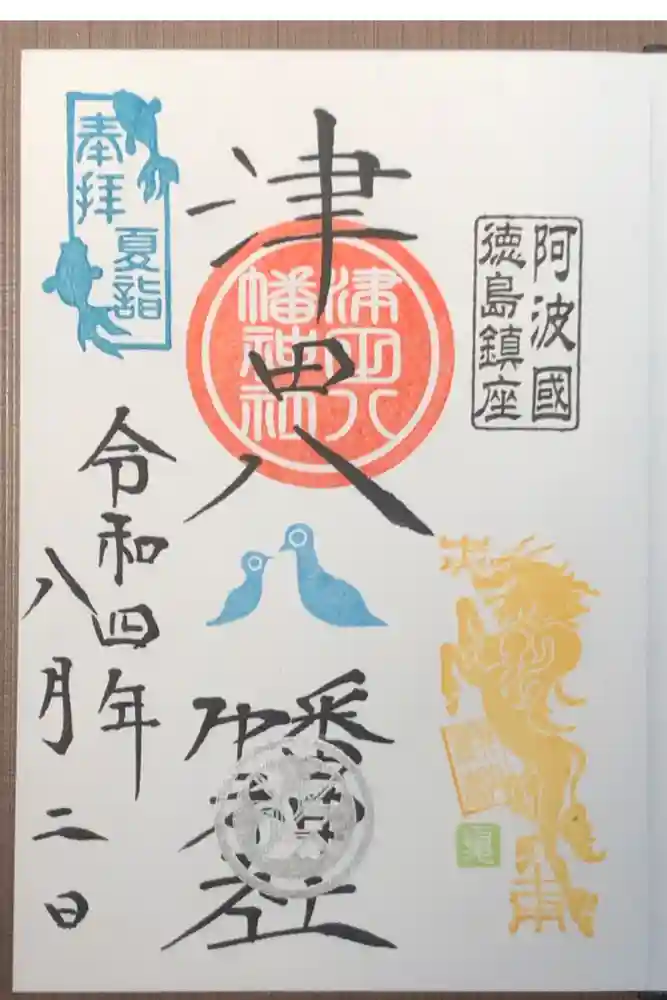 阿波國
徳島鎮座
津田八幡神社
津田八
幡神社
奉拝
夏詣
令和四年
八月二日